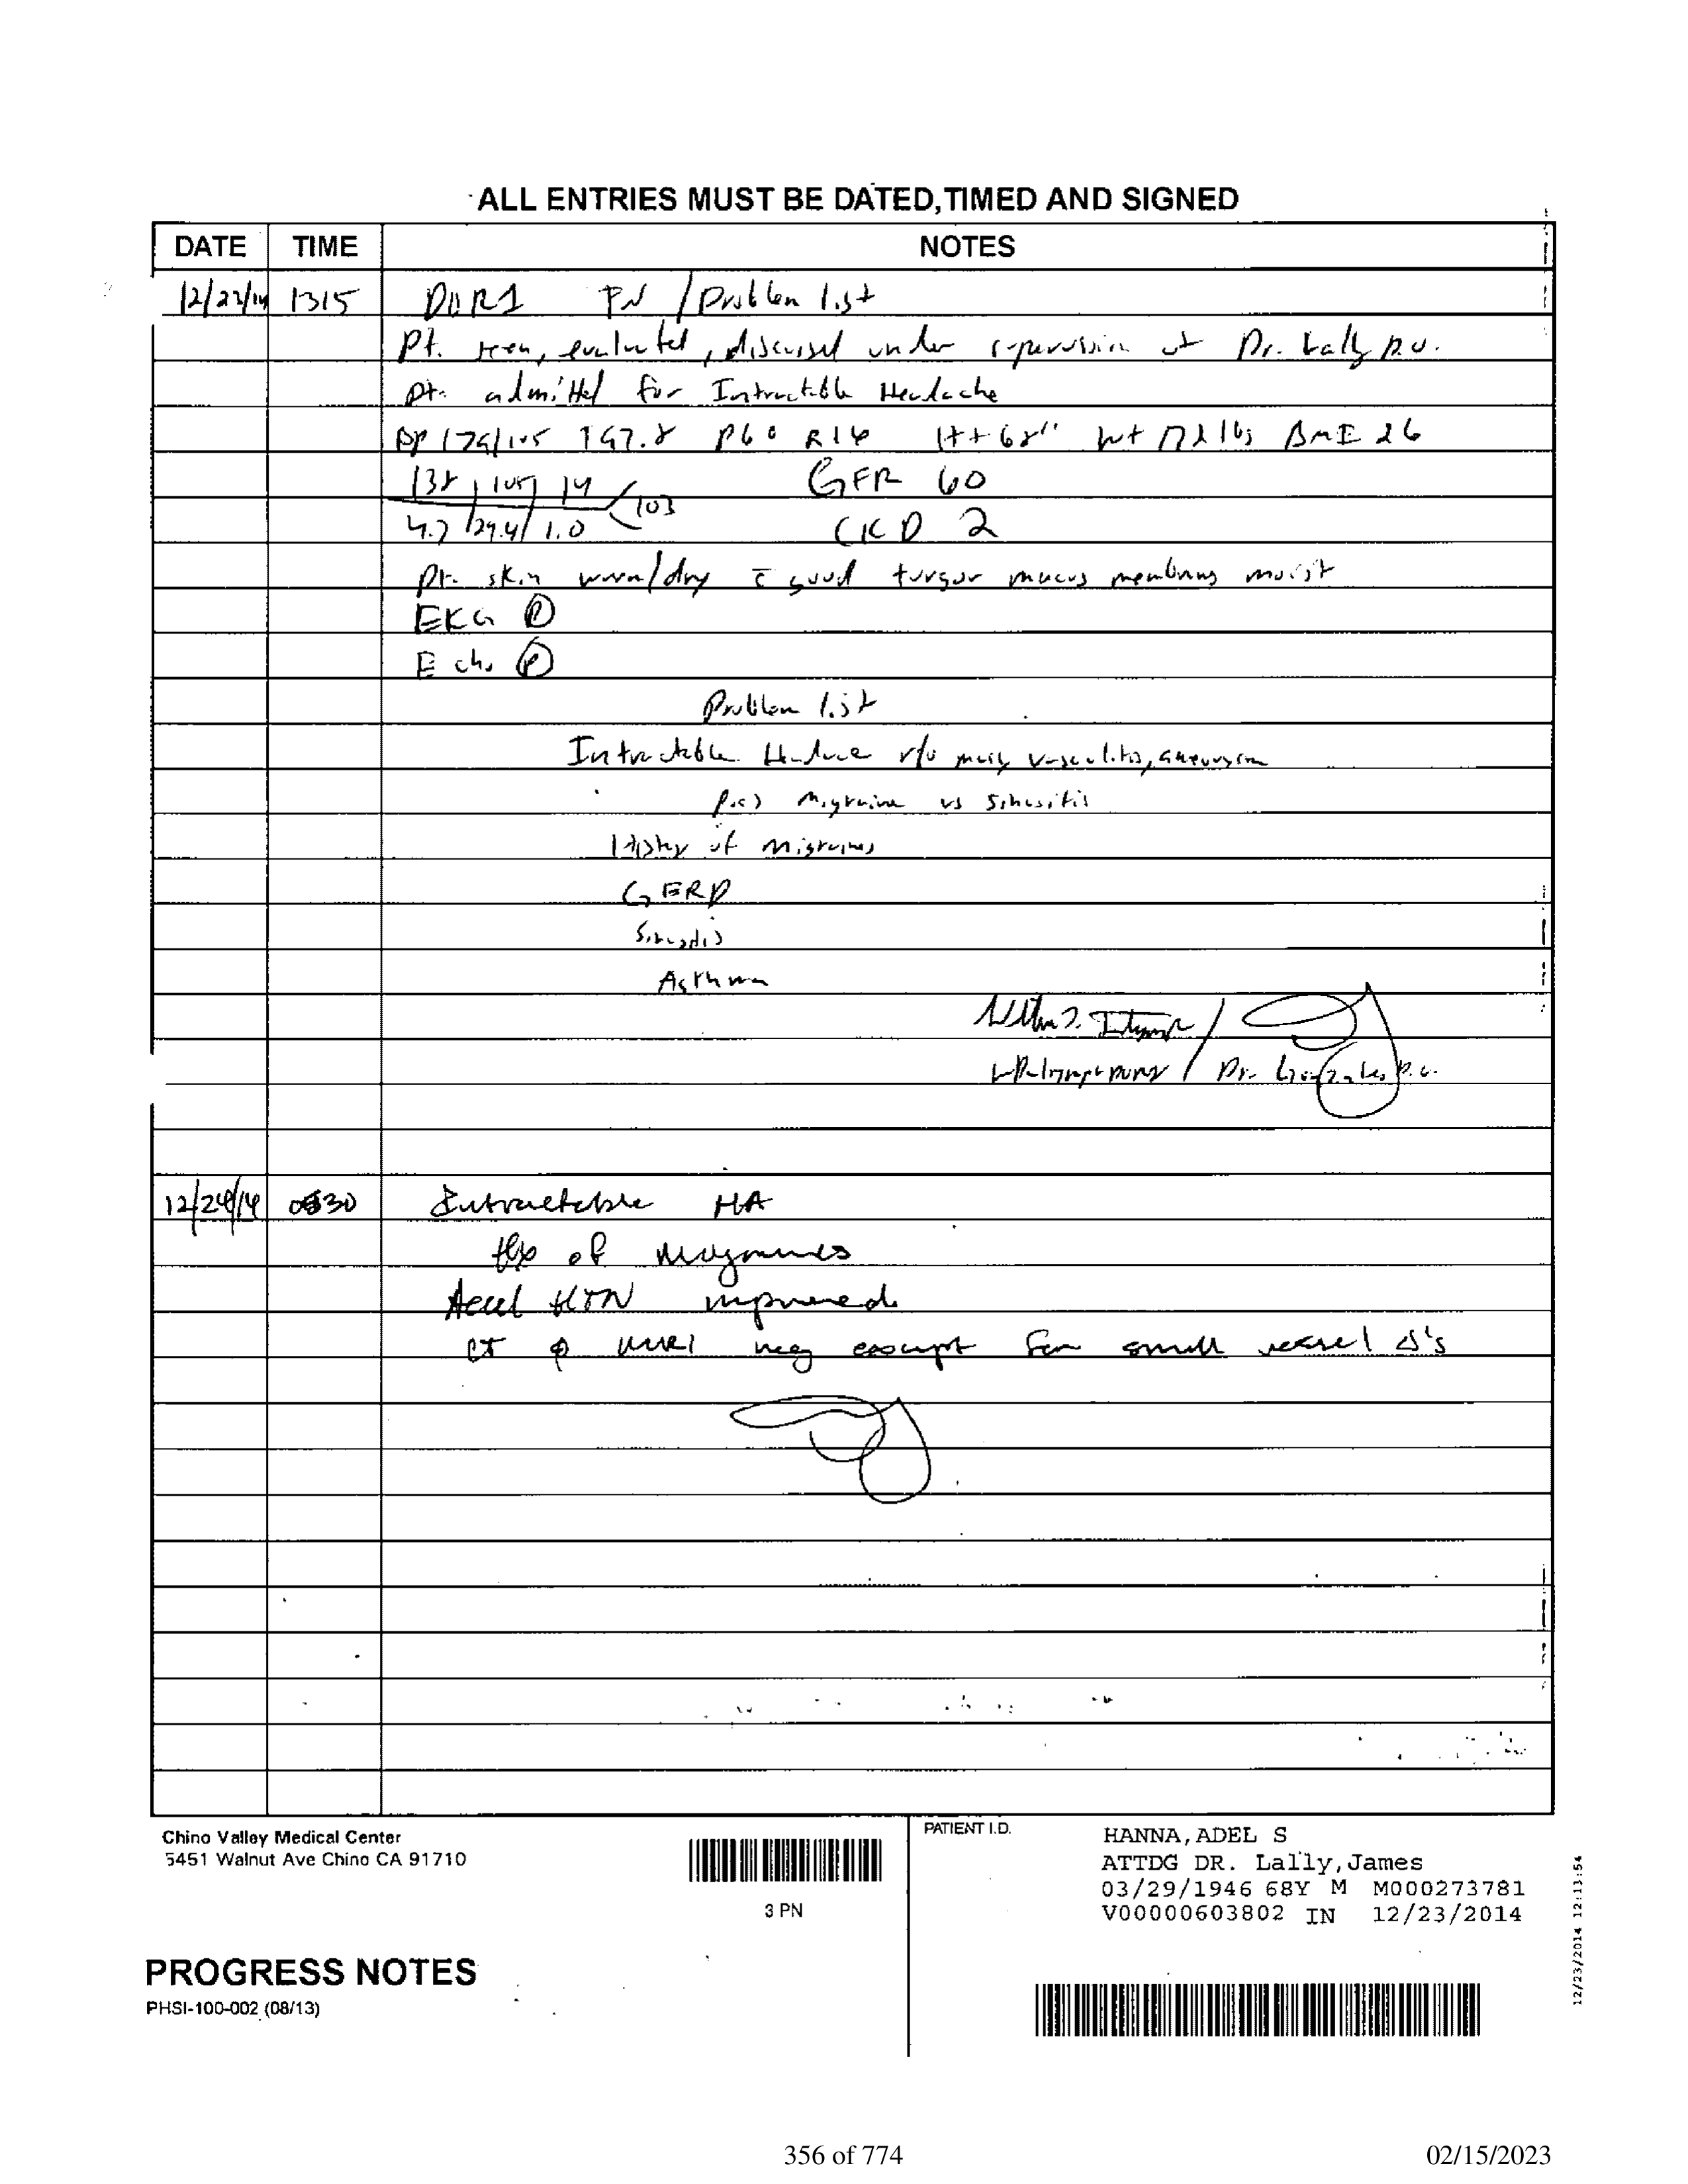 ALL ENTRIES MUST BE DATED, TIMED AND SIGNED
DATE TIME NOTES
1315 PN / Problem list
Pt. seen, evaluated, discussed under supervision of Dr. Lally D.O.
pt. admitted for Intractable Headache
T 97.8 P 60 R 16 Ht 68" Wt 172 lbs BMI 26
138 14 103 GFR 60
29.4 1.0 CKD 2
Pt. skin warm/dry c̄ good turgor mucus membranes moist
EKG Ⓟ
Echo Ⓟ
Problem list
Intractable r/o vasculitis, aneurysm
Migraine vs Sinusitis
History of Migraines
GERD
Sinusitis
Asthma
/ Dr.
12/24/14 Intractable HA
Hx of Migraines
Accel HTN improved
CT MRI neg except for small vessel Δ's
Chino Valley Medical Center
5451 Walnut Ave Chino CA 91710
3 PN
PATIENT I.D.
HANNA, ADEL S
ATTDG DR. Lally, James
03/29/1946 68Y M M000273781
V00000603802 IN 12/23/2014
12/23/2014 12:13:54
PROGRESS NOTES
PHSI-100-002 (08/13)
356 of 774 02/15/2023